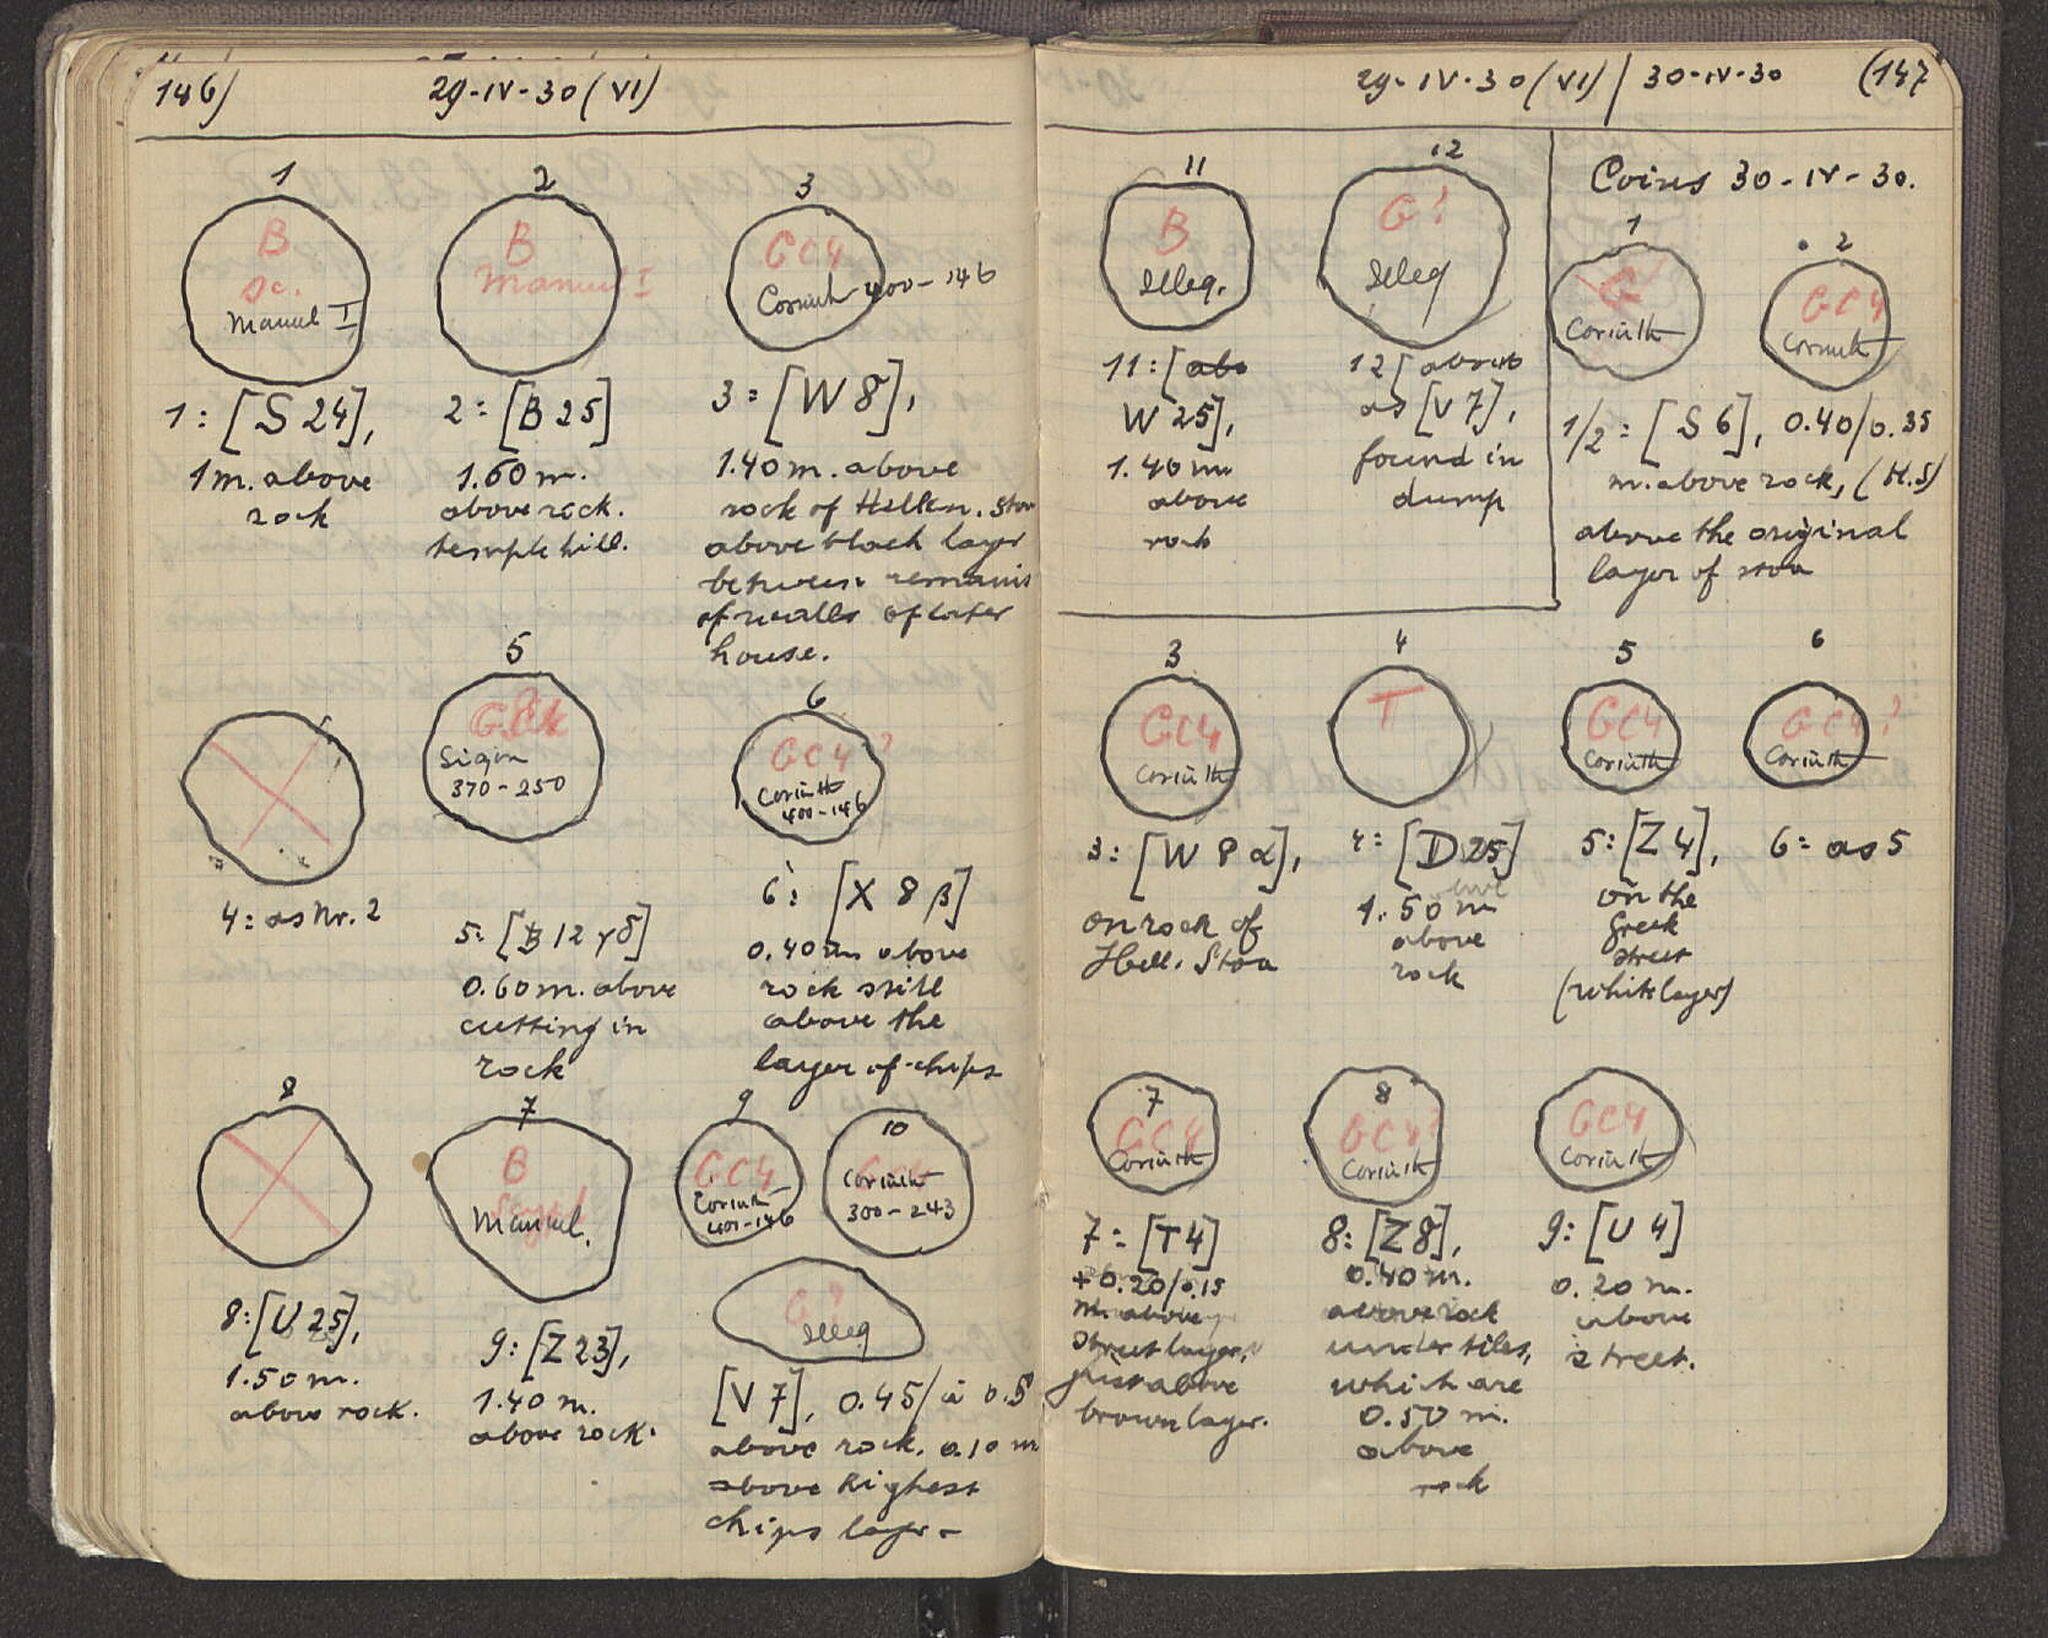 146)
29-IV-30 (VI)
1
B
Sc.
Manuel I
1: [S 24],
1 m. above
rock
2
B
Manuel I
2: [B 25]
1.60 m.
above rock.
temple hill.
3
GC4
Corinth 400-146
3: [W 8],
1.40 m. above
rock of Hellen. Stoa
above black layer
between remains
of walls of later
house.
4: as Nr. 2
5
G
Sicyon
370-250
5: [B 12 γδ]
0.60 m. above
cutting in
rock
6
GC4?
Corinth
400-146
6: [X 8 β]
0.40 m above
rock still
above the
layer of chips
8
8: [U 25],
1.50 m.
above rock.
7
B
Manuel.
9: [Z 23],
1.40 m.
above rock.
9
GC4
Corinth
400-146
10
Corinth
300-243
G?
illeg
[V 7], 0.45/
above rock. 0.10 m
above highest
chips layer-
29-IV-30 (VI) / 30-IV-30
(147
11
B
illeg.
11: [abo
W 25],
1.40 m
above
rock
12
G?
illeg
12 [about
as [V 7],
found in
dump
Coins 30-IV-30.
1
G
Corinth
2
GC4
Corinth
1/2 = [S 6], 0.40/0.35
m. above rock, (H.S)
above the original
layer of stoa
3
GC4
Corinth
3: [W 8 α],
on rock of
Hell. Stoa
4
T
4: [D 25]
1.50 m
above
rock
5
GC4
Corinth
5: [Z 4],
on the
Greek
street
(white layer)
6
GC4?
Corinth
6: as 5
7
GC4
Corinth
7 = [T 4]
+0.20/0.15
m. above
street layer,
just above
brown layer.
8
GC4?
Corinth
8: [Z 8],
0.40 m.
above rock
under tiles,
which are
0.50 m.
above
rock
GC4
Corinth
9: [U 4]
0.20 m.
above
street.